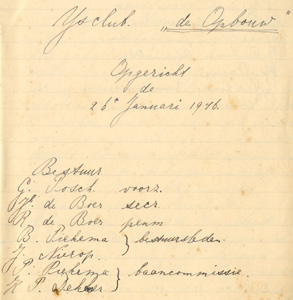 Ysclub. „de Opbouw"
Opgericht
de
26e Januari 1946.
Bestuur
G. Posch. voorz.
de Boer secr.
R de Boer penm
B. Piekema } bestuursleden.
J. Nierop.
P. Piekema } baancommissie
K P.